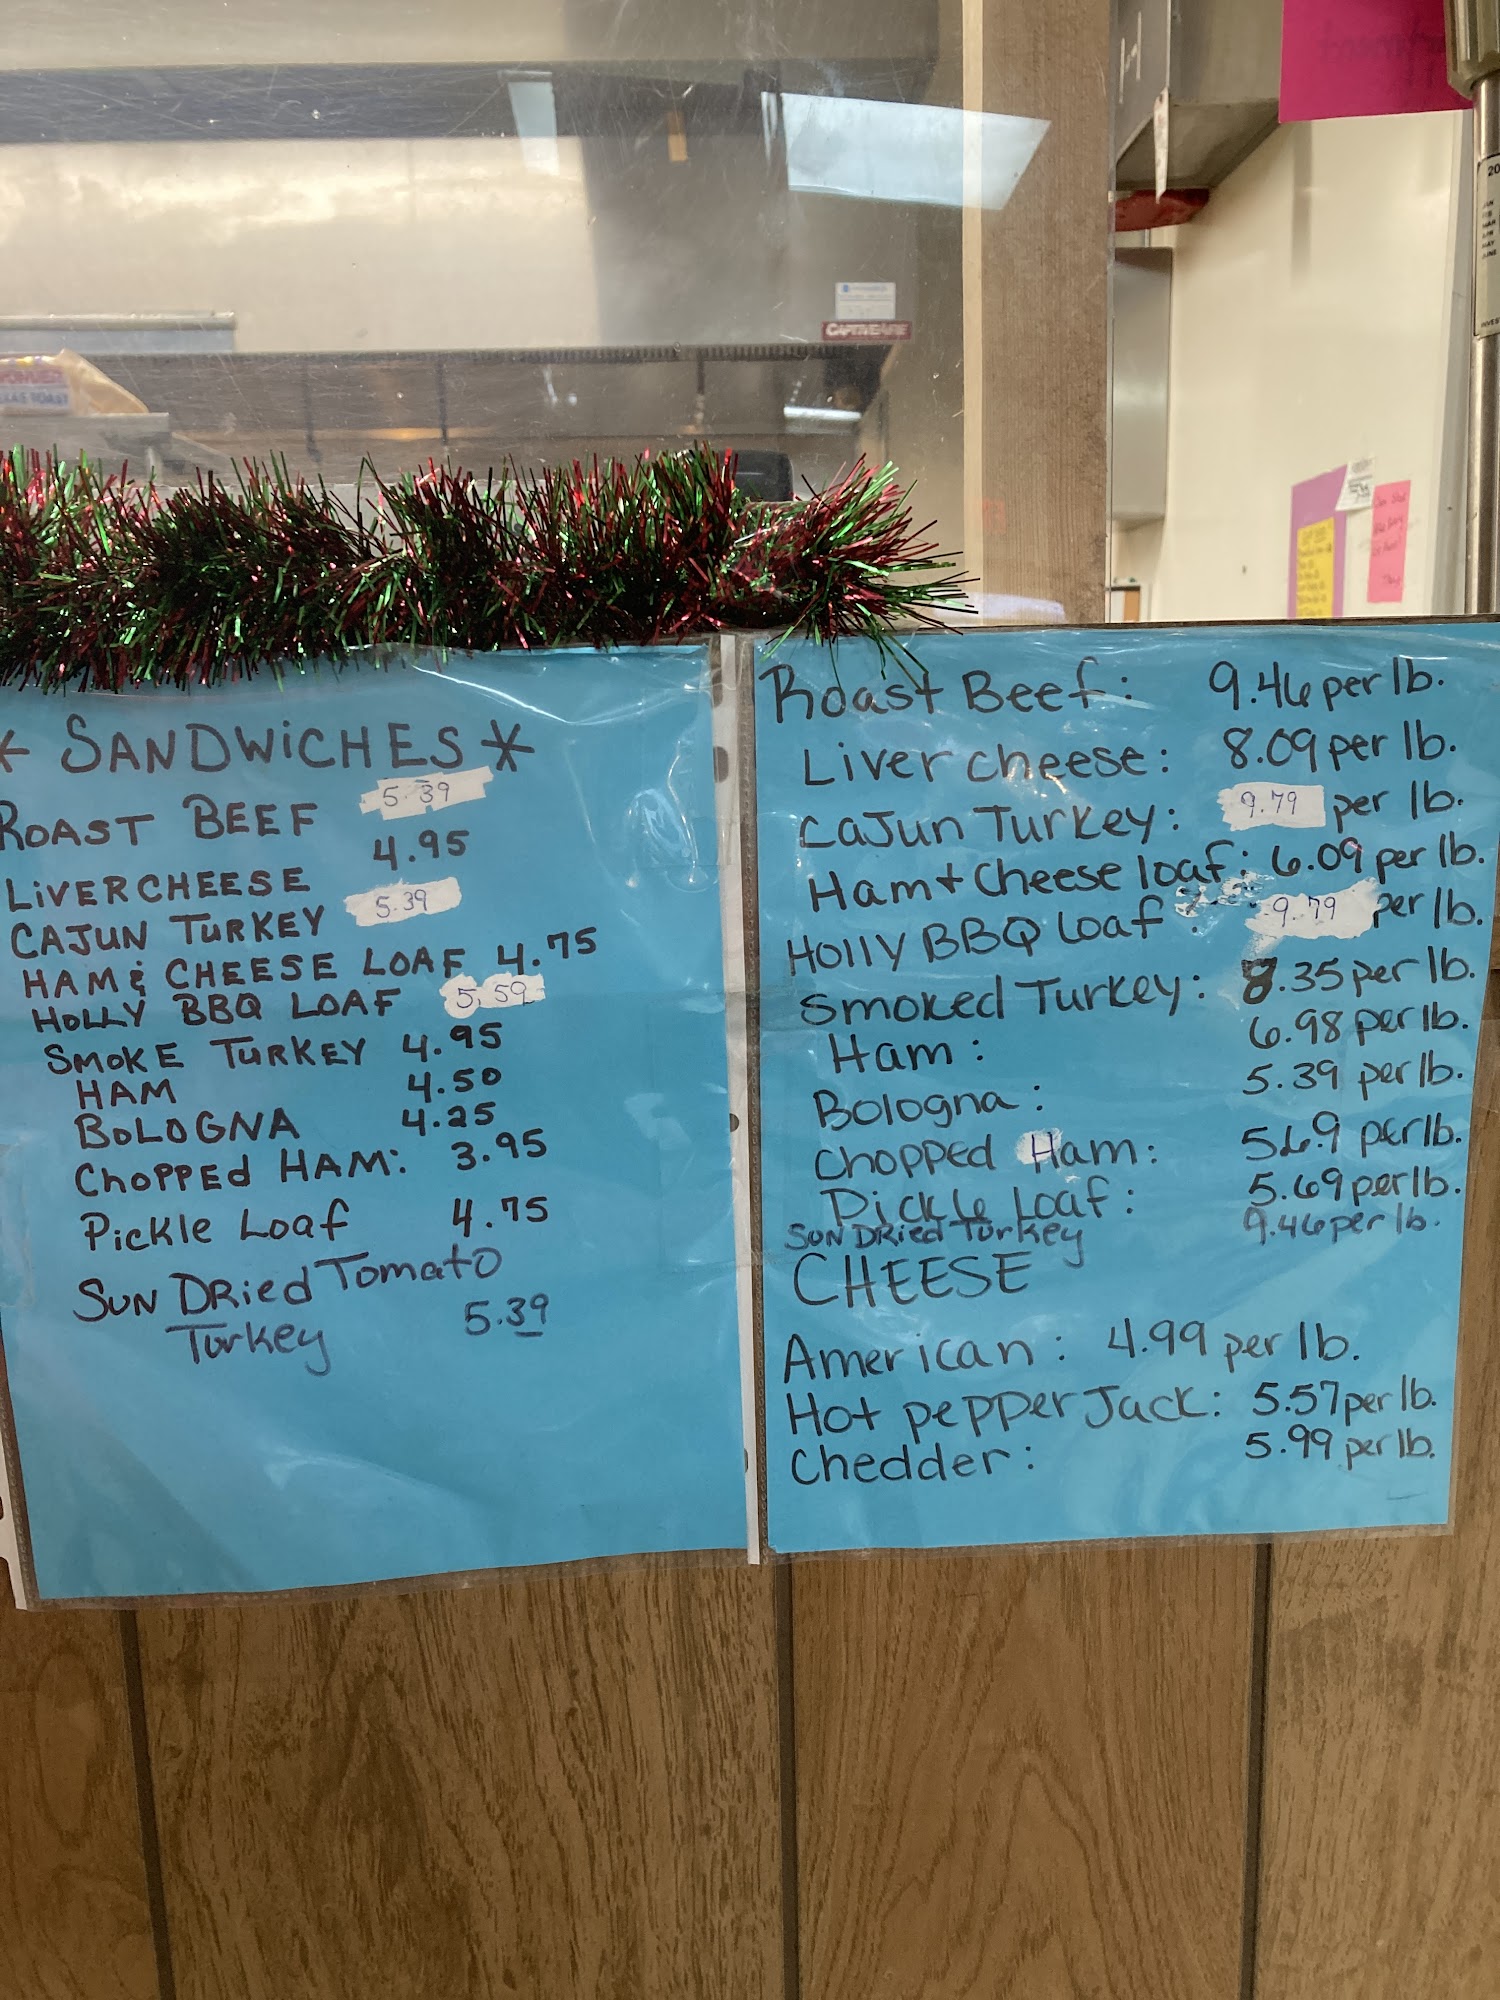 CAPTIVEAIRE
TEXAS TOAST
* SANDWiCHES *
ROAST BEEF 5.39
LiVERCHEESE 4.95
CAJUN TURKEY 5.39
HAM & CHEESE LOAF 4.75
HOLLY BBQ LOAF 5.59
SMOKE TURKEY 4.95
HAM 4.50
BOLOGNA 4.25
CHOPPEd HAM: 3.95
PickLe Loaf 4.75
SUN DRied Tomato
Turkey 5.39
Roast Beef: 9.46 per lb.
Liver cheese: 8.09 per lb.
CaJun Turkey: 9.79 per lb.
Ham + Cheese loaf: 6.09 per lb.
Holly BBQ Loaf: 9.79 per lb.
Smoked Turkey: 8.35 per lb.
Ham: 6.98 per lb.
Bologna: 5.39 per lb.
Chopped Ham: 5.69 per lb.
Pickle Loaf: 5.69 per lb.
SUN DRied Turkey 9.46 per lb.
CHEESE
American: 4.99 per lb.
Hot pepper Jack: 5.57 per lb.
Chedder: 5.99 per lb.